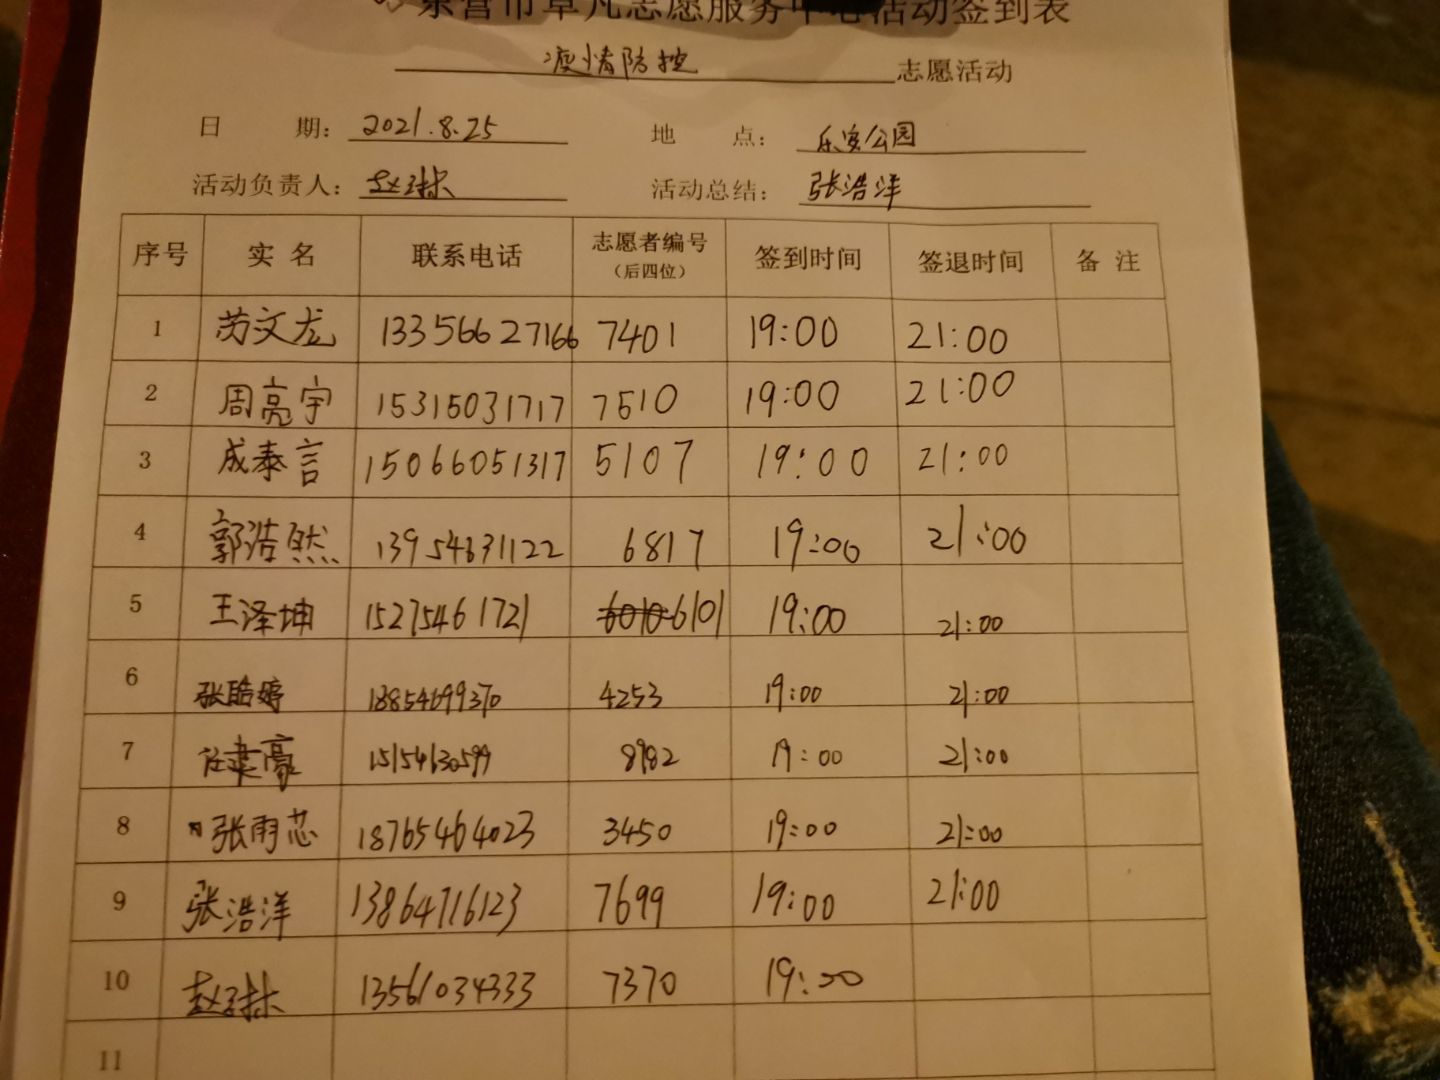 东营市草凡志愿服务中心活动签到表
疫情防控 志愿活动
日 期: 2021.8.25 地 点: 乐安公园
活动负责人: 活动总结: 张浩洋
序号 实名 联系电话 志愿者编号（后四位） 签到时间 签退时间 备注
1 苏文龙 13356627166 7401 19:00 21:00
2 周亮宇 15315031717 7510 19:00 21:00
3 成泰言 15066051317 5107 19:00 21:00
4 郭浩然 13954631122 6817 19:00 21:00
5 王泽坤 15275461721 6010 6101 19:00 21:00
6 张皓婷 13854699370 4253 19:00 21:00
7 任建豪 15154630599 8982 19:00 21:00
8 张雨芯 18765464023 3450 19:00 21:00
9 张浩洋 13864716123 7699 19:00 21:00
10 13561034333 7370 19:00
11